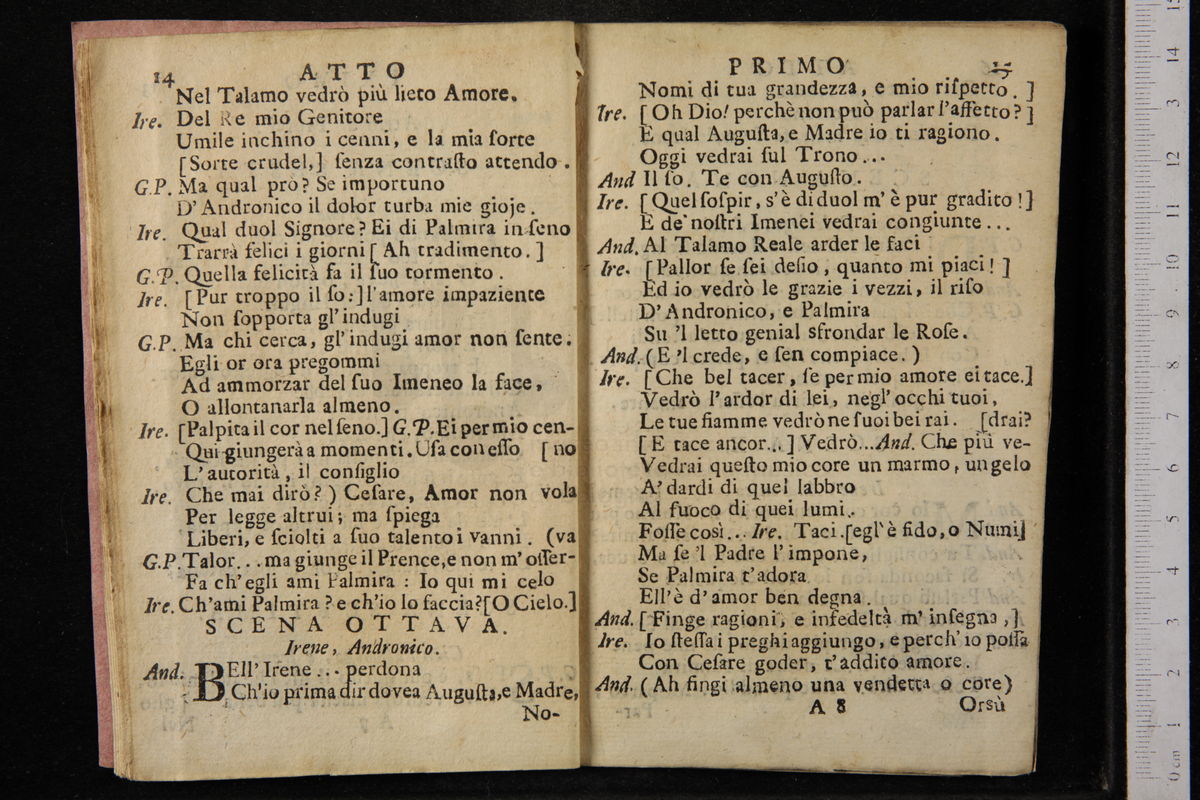 14 ATTO
Nel Talamo vedrò più lieto Amore.
Ire. Del Re mio Genitore
Umile inchino i cenni, e la mia ſorte
[Sorte crudel,] ſenza contraſto attendo.
G.P. Ma qual prò? Se importuno
D'Andronico il dolor turba mie gioje.
Ire. Qual duol Signore? Ei di Palmira in ſeno
Trarrà felici i giorni [Ah tradimento.]
G.P. Quella felicità fa il ſuo tormento.
Ire. [Pur troppo il ſo:] l'amore impaziente
Non ſopporta gl'indugi
G.P. Ma chi cerca, gl'indugi amor non ſente.
Egli or ora pregommi
Ad ammorzar del ſuo Imeneo la face,
O allontanarla almeno.
Ire. [Palpita il cor nel ſeno.] G.P. Ei per mio cen-
Qui giungerà a momenti. Uſa con eſſo [no
L'autorità, il conſiglio
Ire. Che mai dirò?) Ceſare, Amor non vola
Per legge altrui; ma ſpiega
Liberi, e ſciolti a ſuo talento i vanni. (va
G.P. Talor... ma giunge il Prence, e non m'oſſer-
Fa ch'egli ami Palmira: Io qui mi celo
Ire. Ch'ami Palmira? e ch'io lo faccia? [O Cielo.]
SCENA OTTAVA.
Irene, Andronico.
And. BEll'Irene... perdona
Ch'io prima dir dovea Auguſta, e Madre,
No-
PRIMO 15
Nomi di tua grandezza, e mio riſpetto.]
Ire. [Oh Dio! perchè non può parlar l'affetto?]
E qual Auguſta, e Madre io ti ragiono.
Oggi vedrai ſul Trono...
And Il ſo. Te con Auguſto.
Ire. [Quel ſoſpir, s'è di duol m'è pur gradito!]
E de' noſtri Imenei vedrai congiunte...
And. Al Talamo Reale arder le faci
Ire. [Pallor ſe ſei deſio, quanto mi piaci!]
Ed io vedrò le grazie i vezzi, il riſo
D'Andronico, e Palmira
Su 'l letto genial sfrondar le Roſe.
And. (E 'l crede, e ſen compiace.)
Ire. [Che bel tacer, ſe per mio amore ei tace.]
Vedrò l'ardor di lei, negl'occhi tuoi,
Le tue fiamme vedrò ne ſuoi bei rai. [drai?
[E tace ancor...] Vedrò... And. Che più ve-
Vedrai queſto mio core un marmo, un gelo
A' dardi di quel labbro
Al fuoco di quei lumi.
Foſſe così... Ire. Taci. [egl'è fido, o Numi]
Ma ſe 'l Padre l'impone,
Se Palmira t'adora
Ell'è d'amor ben degna.
And. [Finge ragioni, e infedeltà m'inſegna,]
Ire. Io ſteſſa i preghi aggiungo, e perch'io poſſa
Con Ceſare goder, t'addito amore.
And. (Ah fingi almeno una vendetta o core)
A 8 Orsù